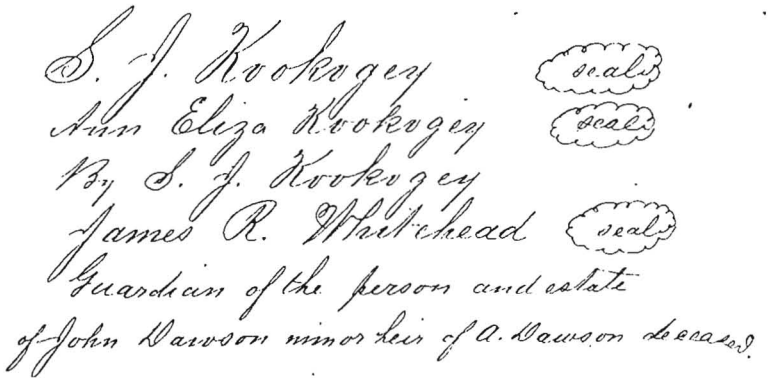 S. J. Kookogey seal
Ann Eliza Kookogey seal
By S. J. Kookogey
James R. Whitehead seal
Guardian of the person and estate
of John Dawson minor heir of A. Dawson deceased.